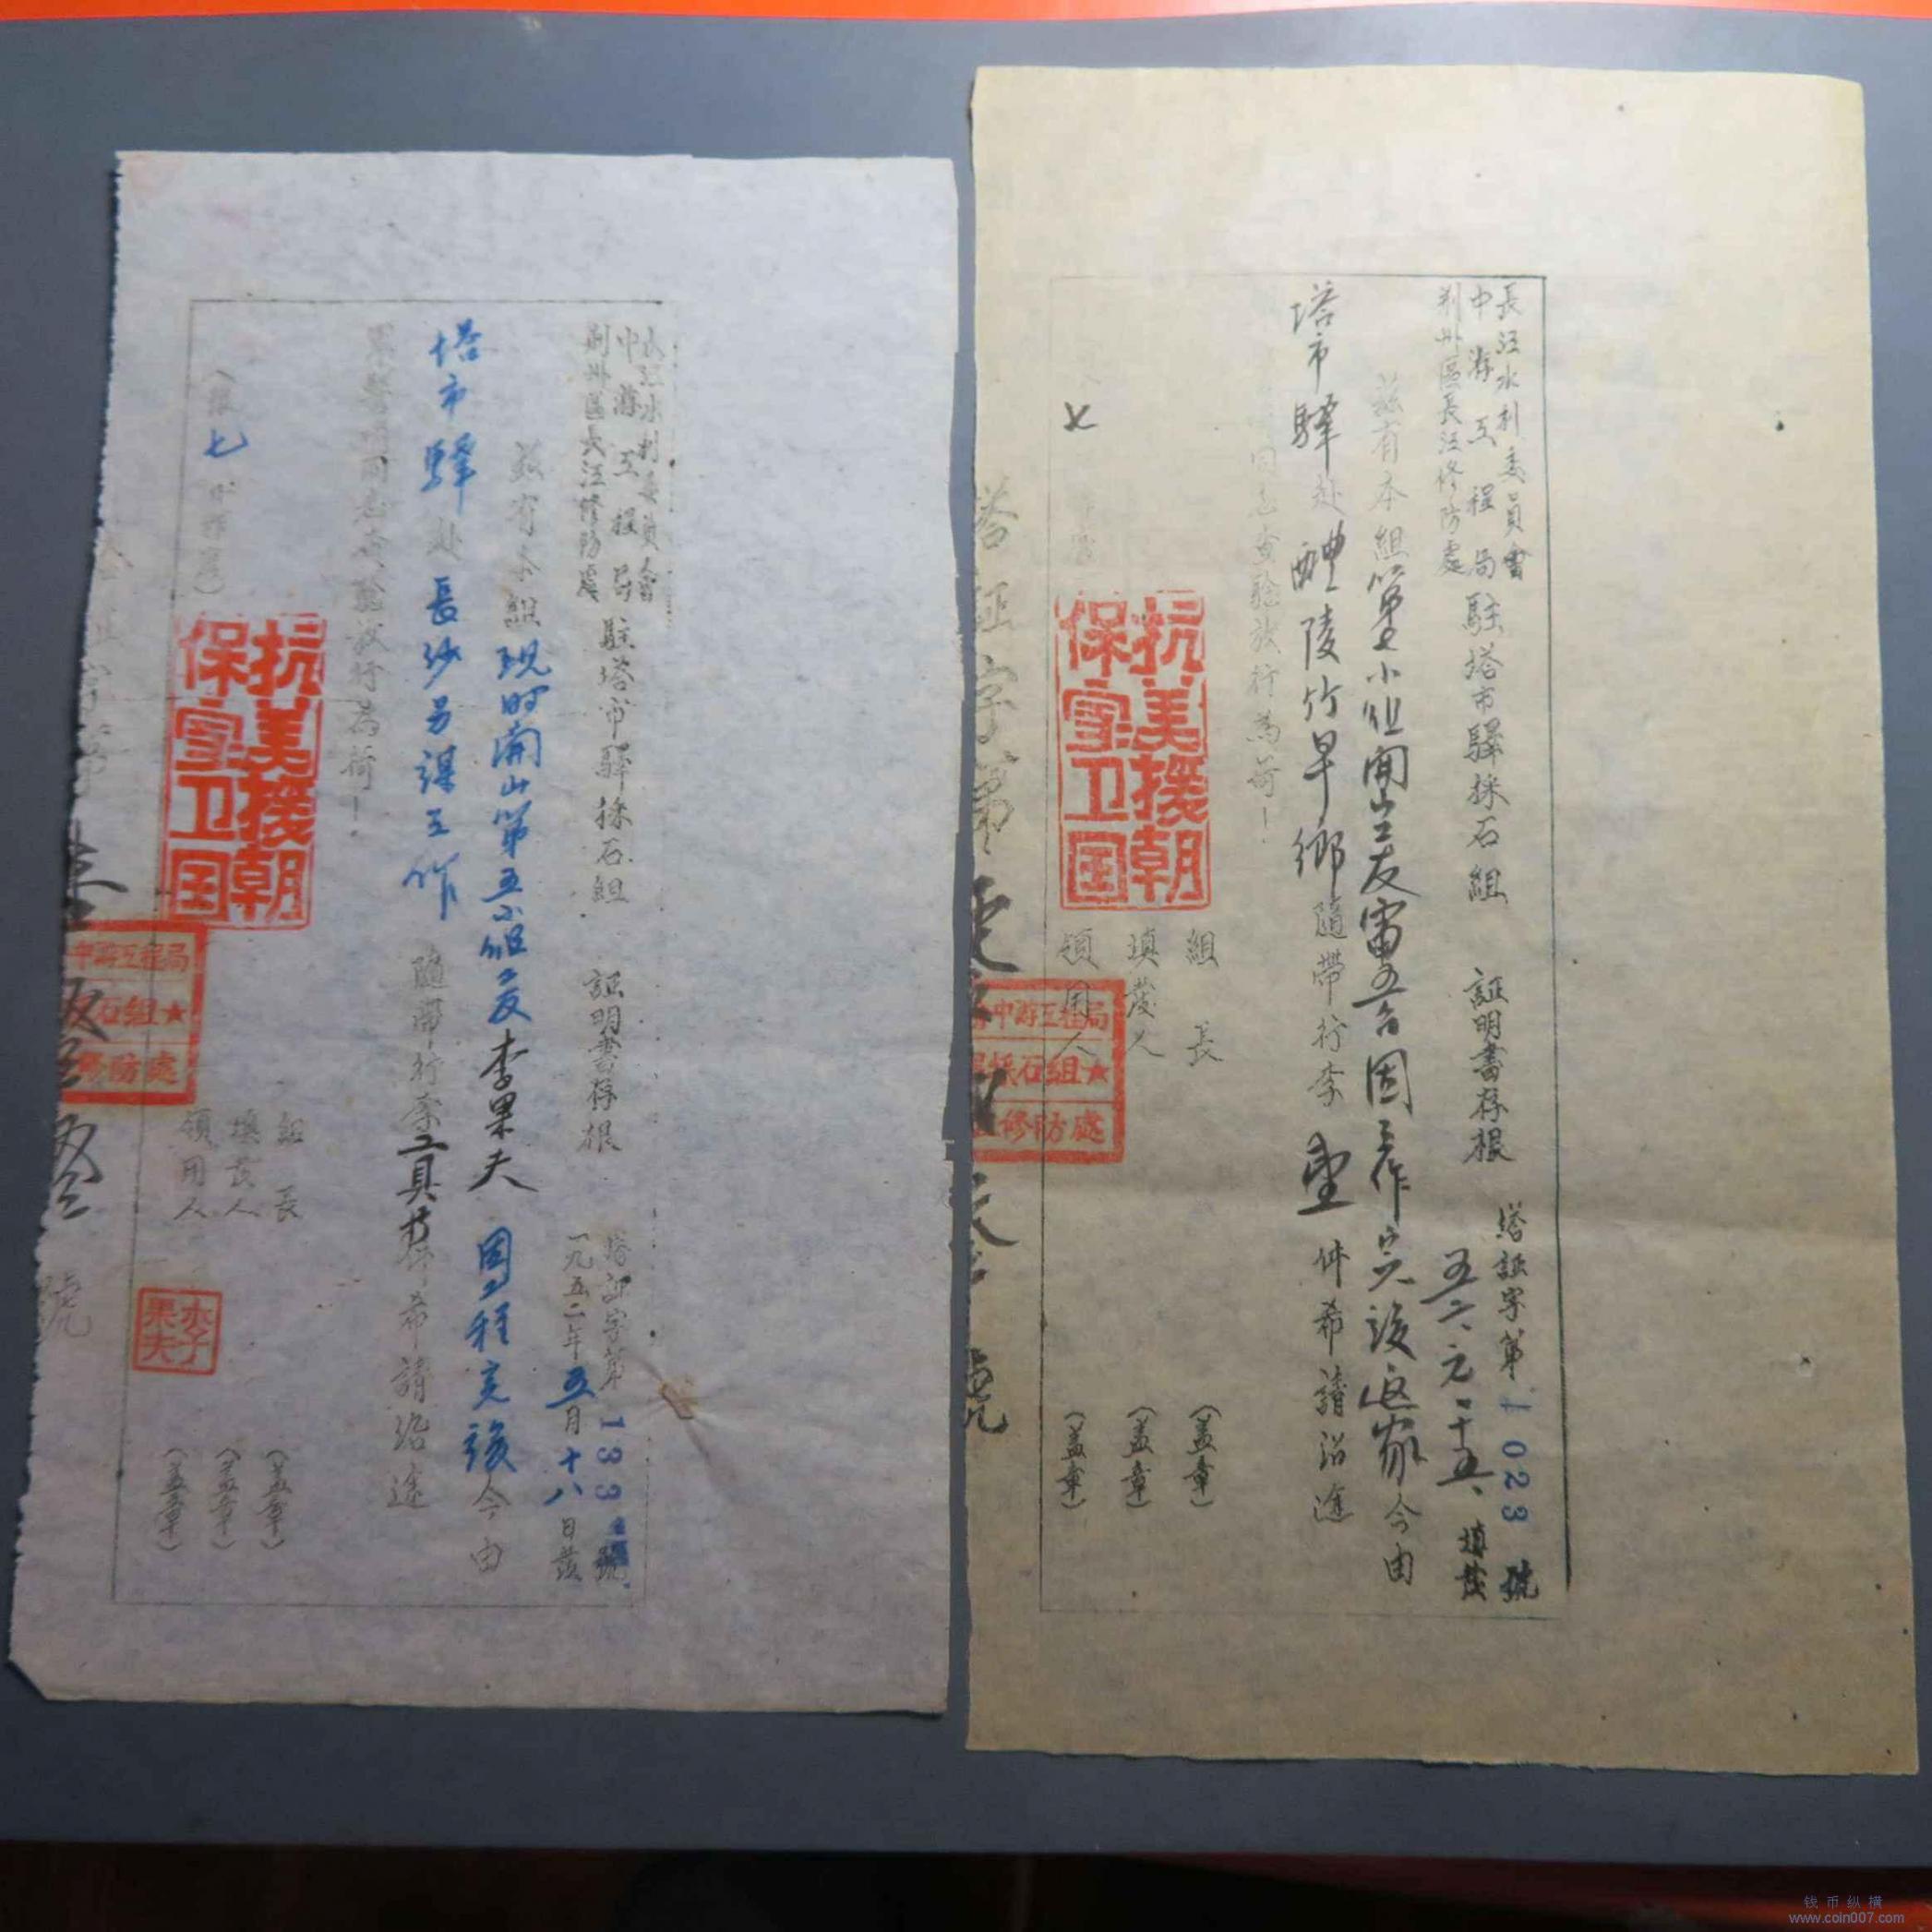 長江水利委員會
中游工程局
荆州區長江修防處
駐塔市驛採石組 証明書存根
塔証字第1023號
五二、元、十五、填發
茲有本組第七小組開山工友甯五吉因工作完後返家今由
塔市驛赴醴陵竹早鄉隨帶行李壹件希請沿途
同志查驗放行為荷！
組長（盖章）
填發人（盖章）
領用人（盖章）
七
抗美援朝
保家卫国
中游工程局
採石組★
修防處
塔証字第
號
長江水利委員會
中游工程局
荆州區長江修防處
駐塔市驛採石組 証明書存根
塔証字第133號
一九五二年五月十八日發
茲有本組現時開山第五小組工友李果夫因工程完後今由
塔市驛赴長沙另謀工作隨帶行李工具廿件希請沿途
軍警同志查驗放行為荷！
組長（盖章）
填發人（盖章）
領用人（盖章）
（限七日作廢）
抗美援朝
保家卫国
中游工程局
石組★
修防處
李果夫
號
钱币纵横
www.coin007.com